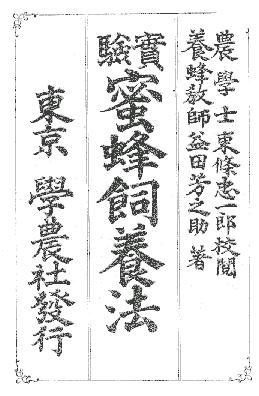 農學士東條忠一郎校閲
養蜂教師益田芳之助 著
實驗
蜜蜂飼養法
東京 學農社發行